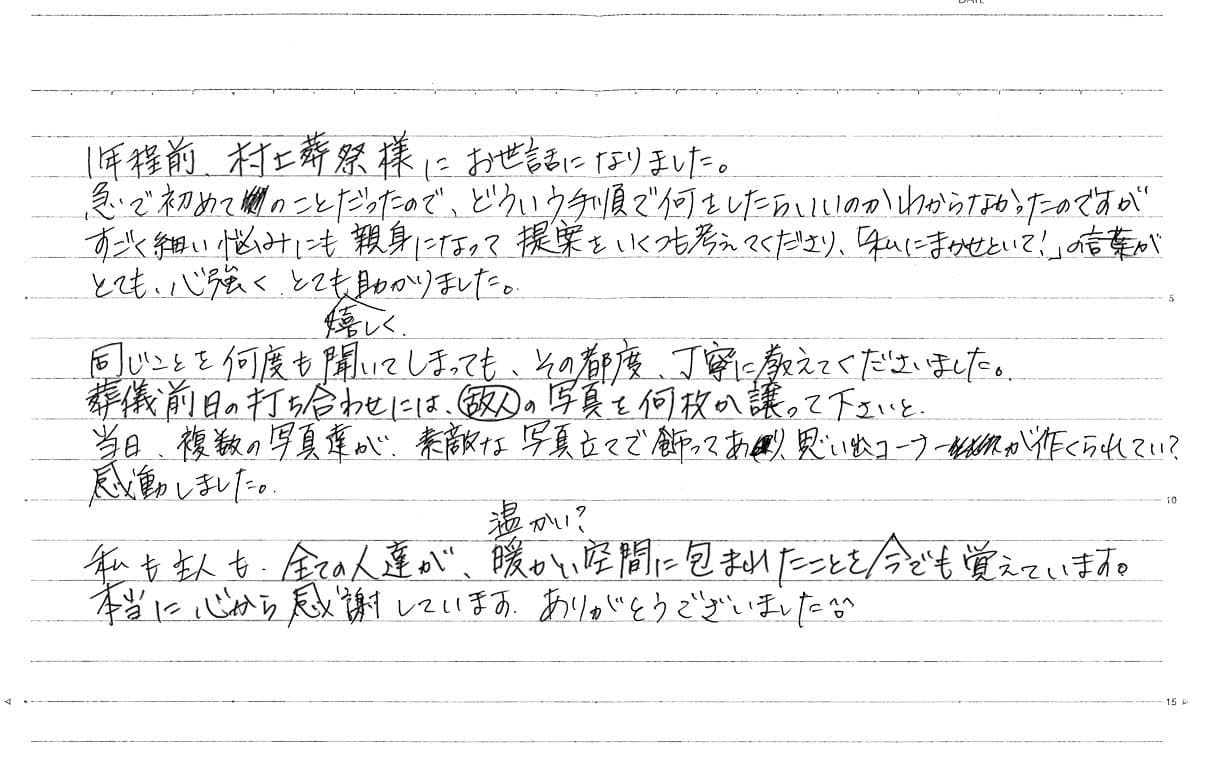 DATE
1年程前、村上葬祭様にお世話になりました。
急で初めてのことだったので、どういう手順で何をしたらいいのかわからなかったのですが
すごく細い悩みにも親身になって提案をいくつも考えてくださり、「私にまかせといて!」の言葉が
とても、心強く、とても助かりました。
嬉しく、
同じことを何度も聞いてしまっても、その都度、丁寧に教えてくださいました。
葬儀前日の打ち合わせには、故人の写真を何枚か譲って下さいと、
当日、複数の写真達が、素敵な写真立てで飾ってあり、思い出コーナーが作くられてい?
感動しました。
温かい?
私も主人も、全ての人達が、暖かい空間に包まれたことを今でも覚えています。
本当に心から感謝しています。ありがとうございました
5
10
15